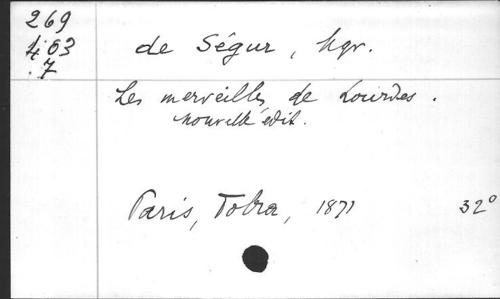 269
403
.7
de Ségur, Mgr.
Les merveilles de Lourdes.
nouvelle édit.
Paris, Tobra, 1871 32°